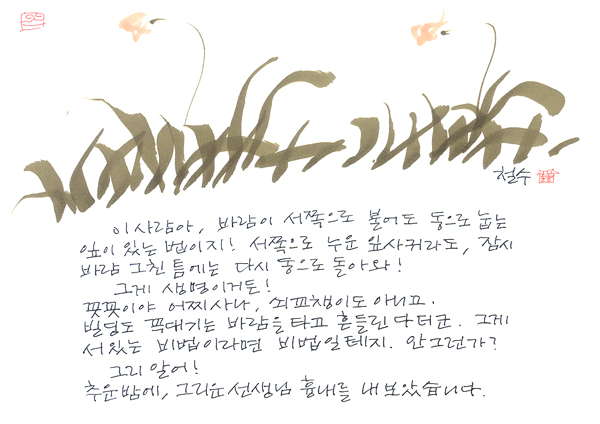 철수
이 사람아, 바람이 서쪽으로 불어도 동으로 눕는
잎이 있는 법이지! 서쪽으로 누운 잎사귀라도, 잠시
바람 그친 틈에는 다시 동으로 돌아와!
그게 생명이거든!
꼿꼿이야 어찌사나, 쇠꼬챙이도 아니고.
빌딩도 꼭대기는 바람을 타고 흔들린다더군. 그게
서있는 비법이라면 비법일테지. 안그런가?
그리 알어!
추운밤에, 그리운 선생님 흉내를 내 보았습니다.